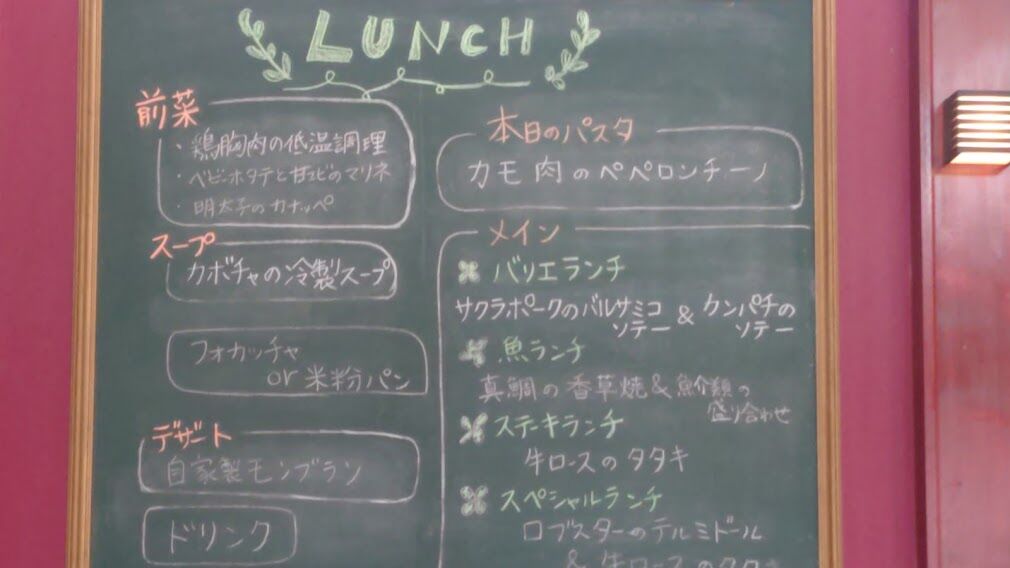 LUNCH
前菜
・鶏胸肉の低温調理
・ベビーホタテと甘エビのマリネ
・明太子のカナッペ
スープ
カボチャの冷製スープ
フォカッチャ
or 米粉パン
デザート
自家製モンブラン
ドリンク
本日のパスタ
カモ肉のペペロンチーノ
メイン
バリエランチ
サクラポークのバルサミコ
ソテー & カンパチの
ソテー
魚ランチ
真鯛の香草焼&魚介類の
盛り合わせ
ステーキランチ
牛ロースのタタキ
スペシャルランチ
ロブスターのテルミドール
& 牛ロースのタタキ